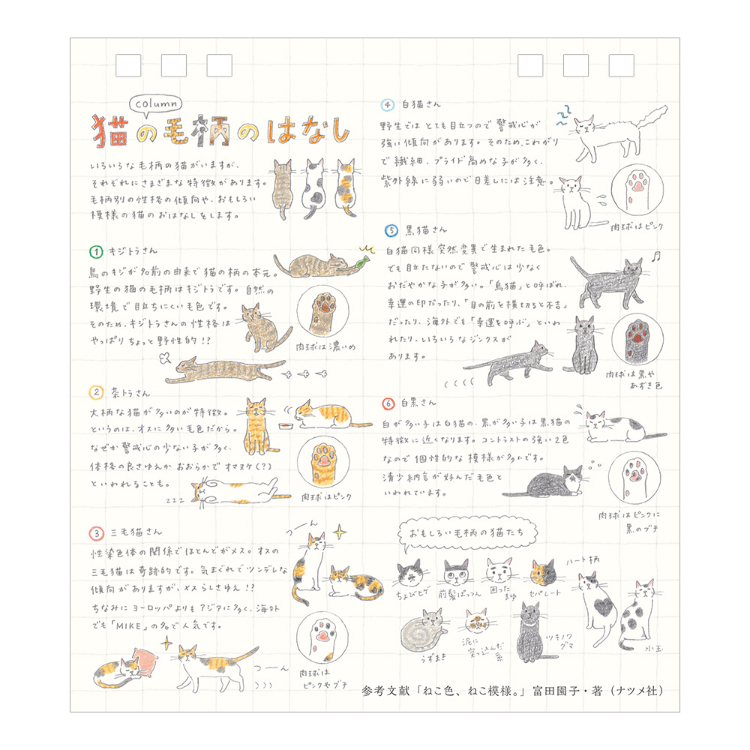 column
猫の毛柄のはなし
いろいろな毛柄の猫がいますが、
それぞれにさまざまな特徴があります。
毛柄別の性格の傾向や、おもしろい
模様の猫のおはなしをします。
① キジトラさん
鳥のキジが名前の由来で猫の柄の本元。
野生の猫の毛柄はキジトラです。自然の
環境で目立ちにくい毛色です。
そのため、キジトラさんの性格は
やっぱりちょっと野性的！？
肉球は濃いめ
② 茶トラさん
大柄な猫が多いのが特徴。
というのは、オスに多い毛色だから。
なぜか警戒心の少ない子が多く、
体格の良さゆえか おおらかで オマヌケ（？）
といわれることも。
ゴロゴロ
肉球はピンク
③ 三毛猫さん
性染色体の関係でほとんどがメス。オスの
三毛猫は奇跡的です。気まぐれでツンデレな
傾向がありますが、メスらしさゆえ！？
ちなみにヨーロッパよりもアジアに多く、海外
でも「MIKE」の名で人気です。
つーん
つーん
肉球は
ピンクやブチ
④ 白猫さん
野生ではとても目立つので警戒心が
強い傾向があります。そのため、こわがり
で繊細、プライド高めな子が多く、
紫外線に弱いので日差しには注意。
肉球はピンク
⑤ 黒猫さん
白猫同様突然変異で生まれた毛色。
でも目立たないので警戒心は少なく
おだやかな子が多い。「烏猫」と呼ばれ
幸運の印だったり、「目の前を横切ると不吉」
だったり、海外でも「幸運を呼ぶ」といわ
れたり、いろいろなジンクスが
あります。
肉球は黒や
あずき色
⑥ 白黒さん
白が多い子は白猫の、黒が多い子は黒猫の
特徴に近くなります。コントラストの強い2色
なので個性的な模様が多いんです。
清少納言が好んだ毛色と
いわれています。
肉球はピンクに
黒のブチ
おもしろい毛柄の猫たち
ちょびヒゲ
前髪ぱっつん
困った
まゆ
セパレート
ハート柄
うずまき
泥に
突っ込んだ
系
ツキノワ
グマ
水玉
参考文献「ねこ色、ねこ模様。」富田園子・著（ナツメ社）